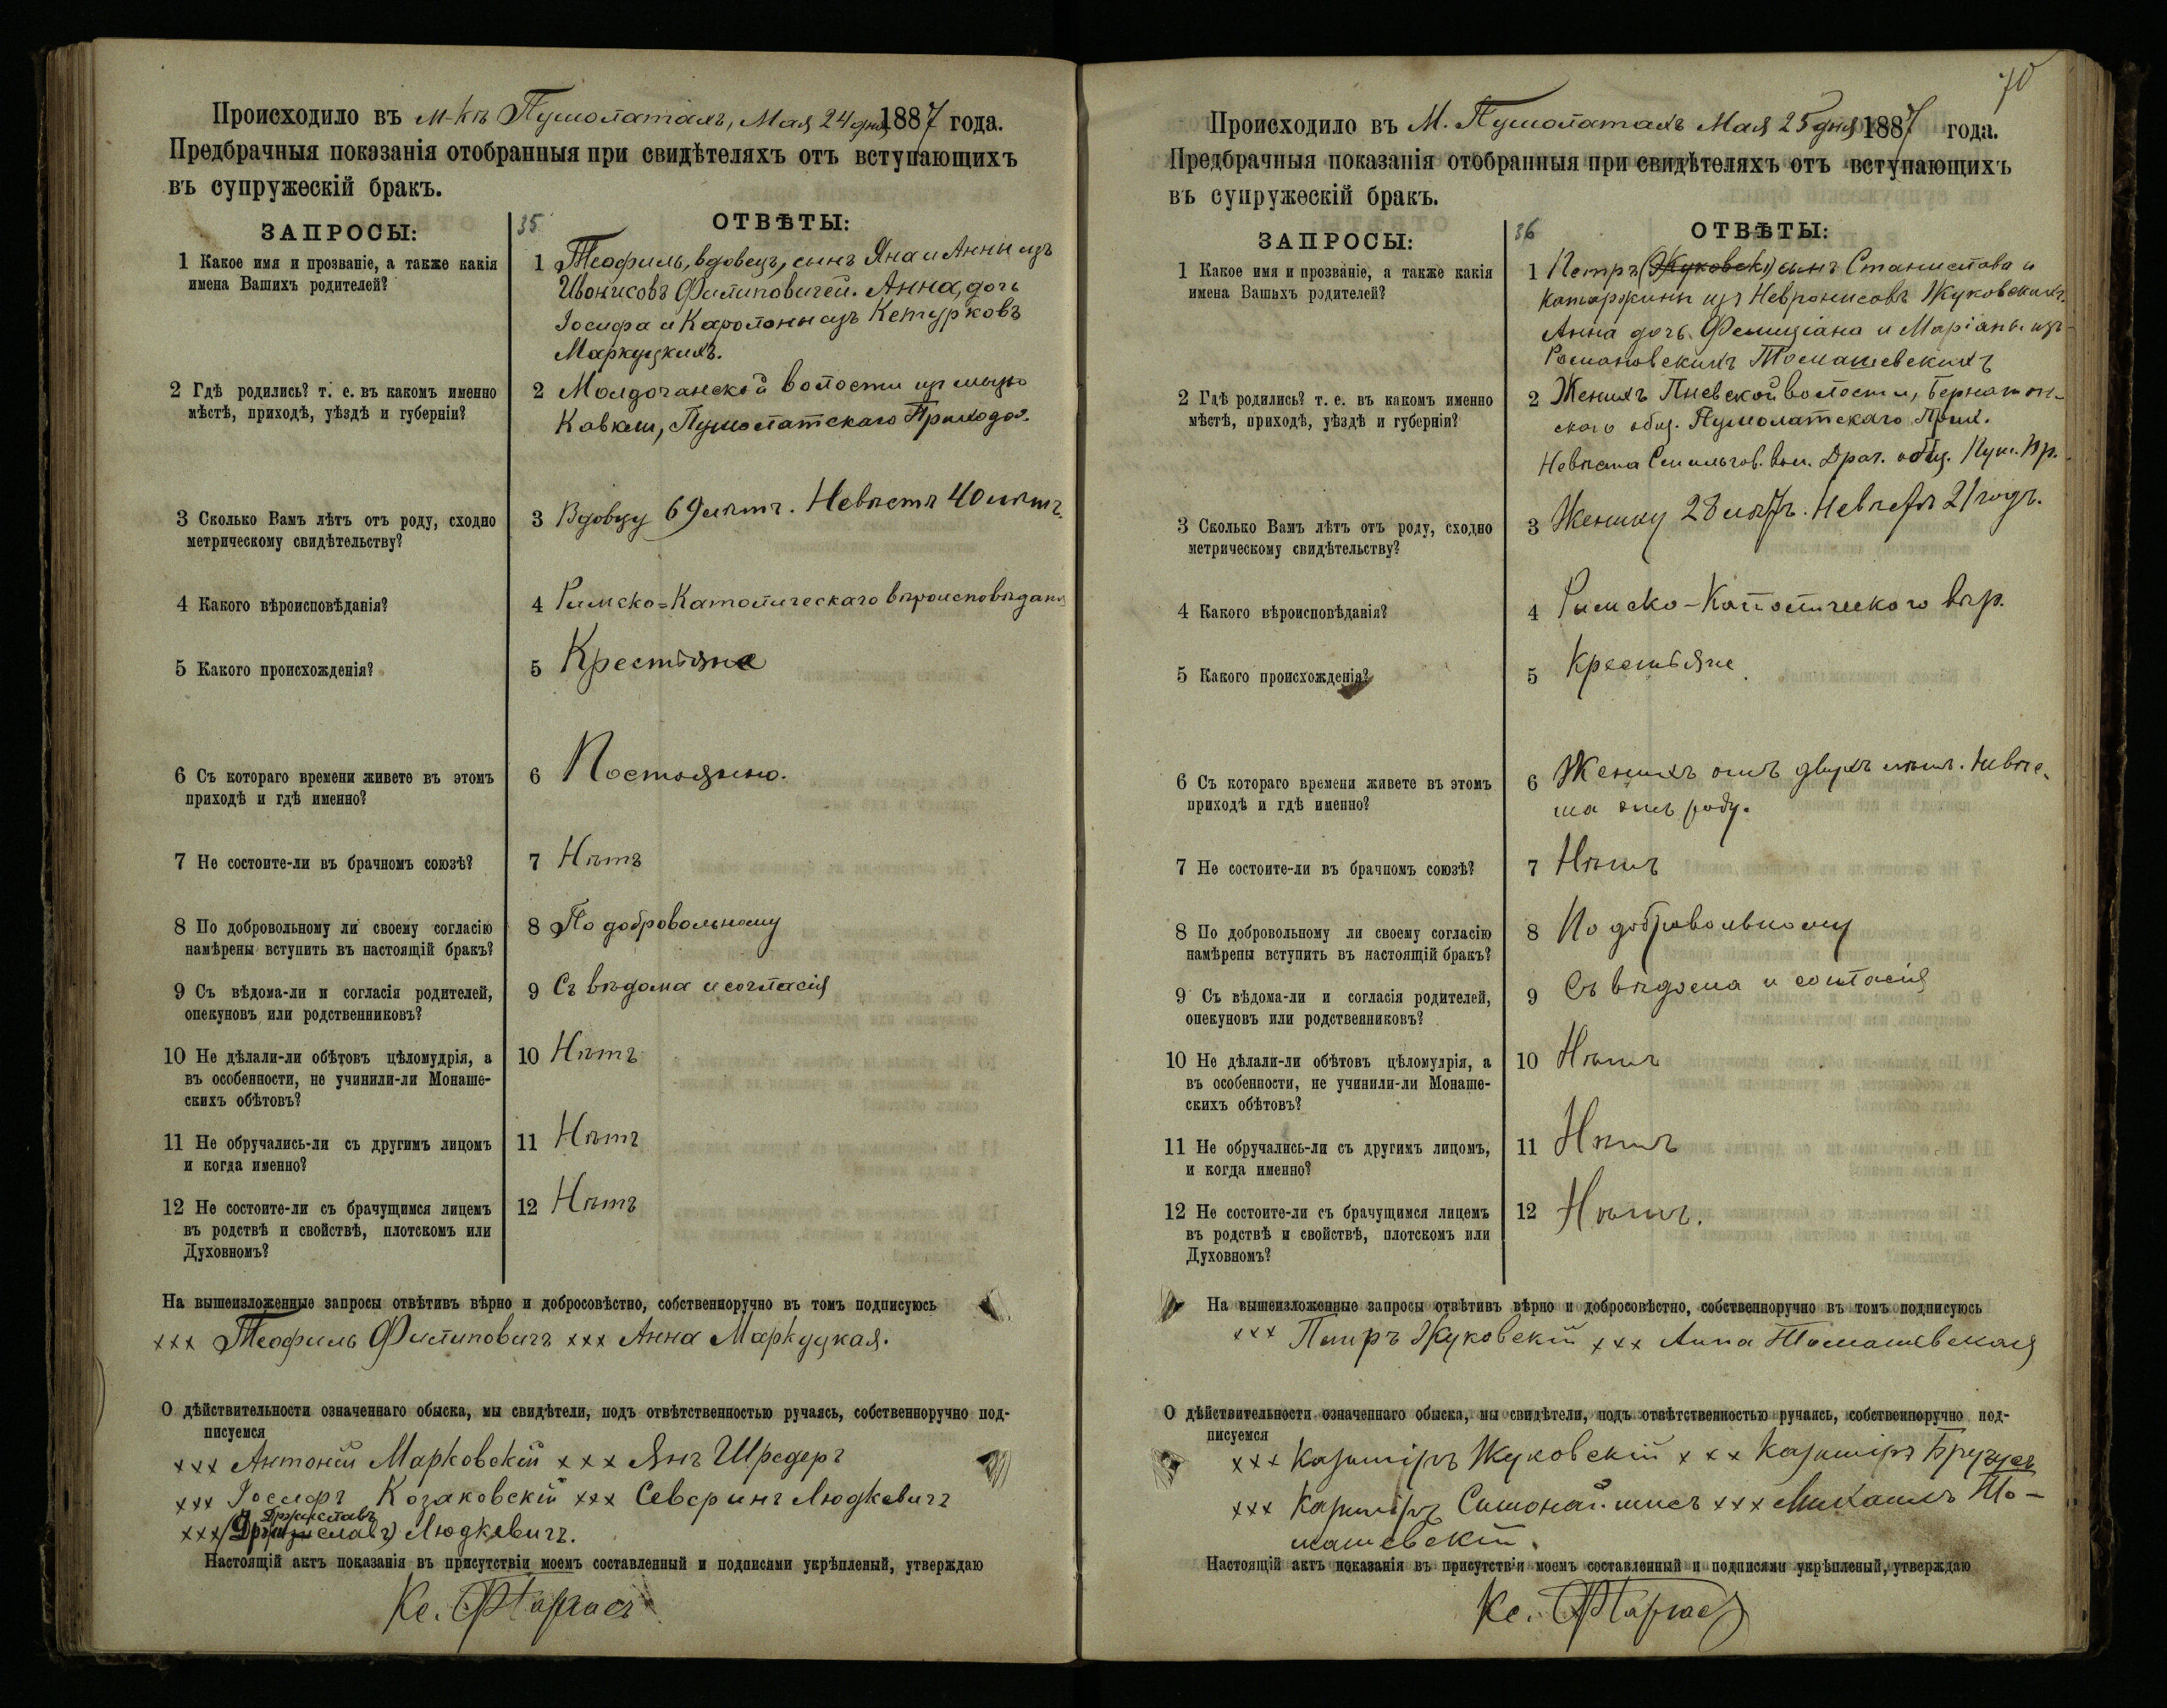 Происходило въ м-кѣ Пумпатахъ, Мая 24 дня 1887 года.
Предбрачныя показанія отобранныя при свидѣтеляхъ отъ вступающихъ
въ супружескій бракъ.
ЗАПРОСЫ:
35
ОТВѢТЫ:
1 Какое имя и прозваніе, а также какія
имена Вашихъ родителей?
1 Теофиль, вдовецъ, сынъ Яна и Анны изъ
Филиповичей. Анна, дочь
Іосифа и Каролины изъ Кетурковъ
Маркуцкихъ.
2 Гдѣ родились? т. е. въ какомъ именно
мѣстѣ, приходѣ, уѣздѣ и губерніи?
2 волости
Прихода.
3 Сколько Вамъ лѣтъ отъ роду, сходно
метрическому свидѣтельству?
3 Вдовцу 69 лѣтъ. Невѣстѣ 40 лѣтъ.
4 Какого вѣроисповѣданія?
4 Римско-Католическаго вѣроисповѣданія
5 Какого происхожденія?
5 Крестьяне
6 Съ котораго времени живете въ этомъ
приходѣ и гдѣ именно?
6 Постоянно.
7 Не состоите-ли въ брачномъ союзѣ?
7 Нѣтъ
8 По добровольному ли своему согласію
намѣрены вступить въ настоящій бракъ?
8 По добровольному
9 Съ вѣдома-ли и согласія родителей,
опекуновъ или родственниковъ?
9 Съ вѣдома и согласія
10 Не дѣлали-ли обѣтовъ цѣломудрія, а
въ особенности, не учинили-ли Монаше-
скихъ обѣтовъ?
10 Нѣтъ
11 Не обручались-ли съ другимъ лицомъ
и когда именно?
11 Нѣтъ
12 Не состоите-ли съ брачущимся лицемъ
въ родствѣ и свойствѣ, плотскомъ или
Духовномъ?
12 Нѣтъ
На вышеизложенные запросы отвѣтивъ вѣрно и добросовѣстно, собственноручно въ томъ подписуюсь
xxx Теофиль Филиповичъ xxx Анна Маркуцкая.
О дѣйствительности означеннаго обыска, мы свидѣтели, подъ отвѣтственностью ручаясь, собственноручно под-
писуемся
xxx Антоній Марковскій xxx Янъ Шредеръ
xxx Іосифъ Козаковскій xxx Северинъ Людкевичъ
xxx Людкевичъ.
Настоящій актъ показанія въ присутствіи моемъ составленный и подписями укрѣпленый, утверждаю
Кс.
70
Происходило въ М. Мая 25 дня 1887 года.
Предбрачныя показанія отобранныя при свидѣтеляхъ отъ вступающихъ
въ супружескій бракъ.
ЗАПРОСЫ:
36
ОТВѢТЫ:
1 Какое имя и прозваніе, а также какія
имена Вашихъ родителей?
1 Петръ (Жуковскі) сынъ Станислава и
Катаржины изъ Жуковскихъ.
Анна дочь Фелиціана и Маріаны изъ
Романовскихъ Томашевскихъ
2 Гдѣ родились? т. е. въ какомъ именно
мѣстѣ, приходѣ, уѣздѣ и губерніи?
2 Женихъ волости,
ского общ. Прих.
Невѣста общ. Пр.
3 Сколько Вамъ лѣтъ отъ роду, сходно
метрическому свидѣтельству?
3 Жениху 28 лѣтъ. Невѣстѣ 21 годъ.
4 Какого вѣроисповѣданія?
4 Римско-Католического вѣр.
5 Какого происхожденія?
5 Крестьяне
6 Съ котораго времени живете въ этомъ
приходѣ и гдѣ именно?
6 Женихъ отъ двухъ лѣтъ. Невѣс-
та отъ роду.
7 Не состоите-ли въ брачномъ союзѣ?
7 Нѣтъ
8 По добровольному ли своему согласію
намѣрены вступить въ настоящій бракъ?
8 По добровольному
9 Съ вѣдома-ли и согласія родителей,
опекуновъ или родственниковъ?
9 Съ вѣдома и согласія
10 Не дѣлали-ли обѣтовъ цѣломудрія, а
въ особенности, не учинили-ли Монаше-
скихъ обѣтовъ?
10 Нѣтъ
11 Не обручались-ли съ другимъ лицомъ,
и когда именно?
11 Нѣтъ
12 Не состоите-ли съ брачущимся лицемъ
въ родствѣ и свойствѣ, плотскомъ или
Духовномъ?
12 Нѣтъ.
На вышеизложенные запросы отвѣтивъ вѣрно и добросовѣстно, собственноручно въ томъ подписуюсь
xxx Петръ Жуковскій xxx Анна Томашевская
О дѣйствительности означеннаго обыска, мы свидѣтели, подъ отвѣтственностью ручаясь, собственноручно под-
писуемся
xxx Казиміръ Жуковскій xxx Казиміръ Бружусъ
xxx Казиміръ xxx Михаилъ То-
машевскій.
Настоящій актъ показанія въ присутствіи моемъ составленный и подписями укрѣпленый, утверждаю
Кс.